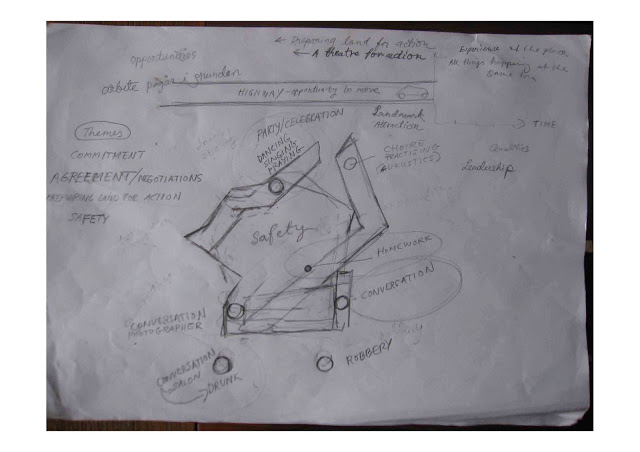 ← Preparing land for action
← A theatre for action
Opportunities
arbete pågår i grunden
HIGHWAY - opportunity to move
Experience of the place
All things happening at the same time
TIME
Landmark
Attraction
Qualities
Leadership
Themes
COMMITMENT
AGREEMENT/NEGOTIATIONS
PREPARING LAND FOR ACTION
SAFETY
PARTY/CELEBRATION
DANCING
SINGING
PRAYING
CHOIRE
PRACTISING
(ACOUSTICS)
Safety
HOMEWORK
CONVERSATION
CONVERSATION
PHOTOGRAPHER
CONVERSATION
SALON
→ DRUNK
ROBBERY